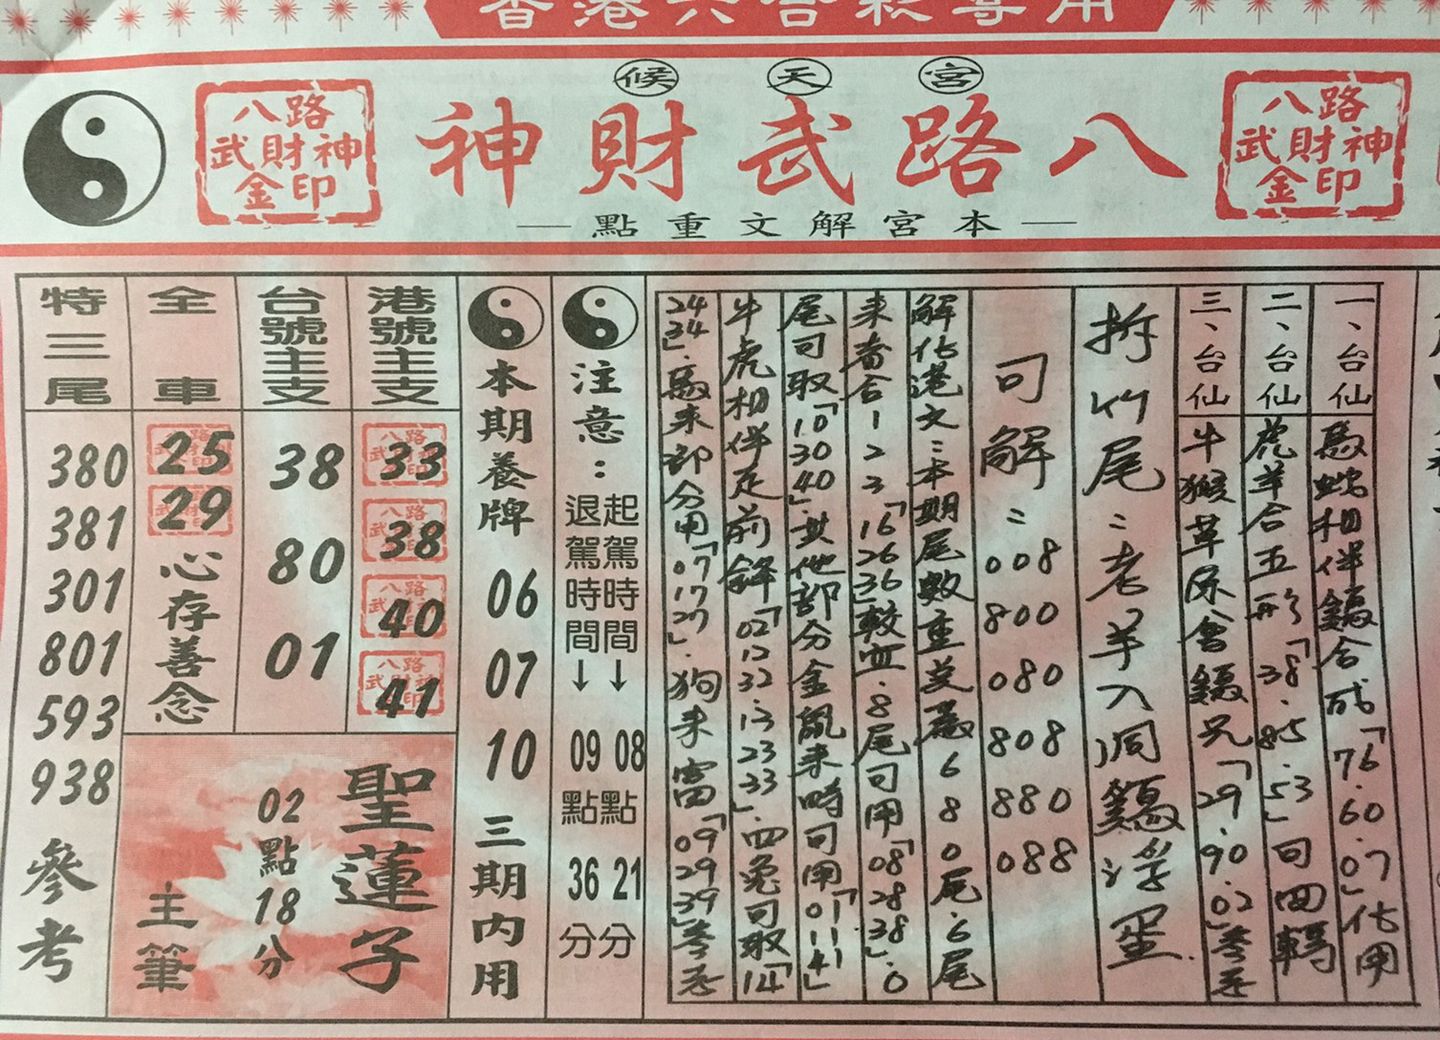 香港六合彩專用
宮天候
八路武財神
八路
武財神
金印
八路
武財神
金印
本宮解文重點
一、台仙
馬蛇相伴鷄合成「76.60.07」代用
二、台仙
虎羊合五形「38.85.53」可回轉
三、台仙
牛猴草原會鷄兄「29.90.02」參考
拆竹尾：老羊入洞鷄浮蛋.
可解：008
800
080
808
880
088
解佔港文：本期尾數重英處680尾.6尾
來奮合123「16 26 36」較宜.8尾可用「08 28 38」.0
尾可取「10 30 40」.其他部分金鼠來時可用「01 11 14」
牛虎相伴走前鋒「02 12 32.13 23 33」.四兔可取「14
24 34」.馬來部分用「07 17 27」.狗來富「09 29 39」參考
注意：
起駕時間↓08點21分
退駕時間↓09點36分
本期養牌 06 07 10 三期內用
港號主支
33
38
40
41
台號主支
38
80
01
全車
25
29
心存善念
特三尾
380
381
301
801
593
938
參考
聖蓮子
02點18分
主筆